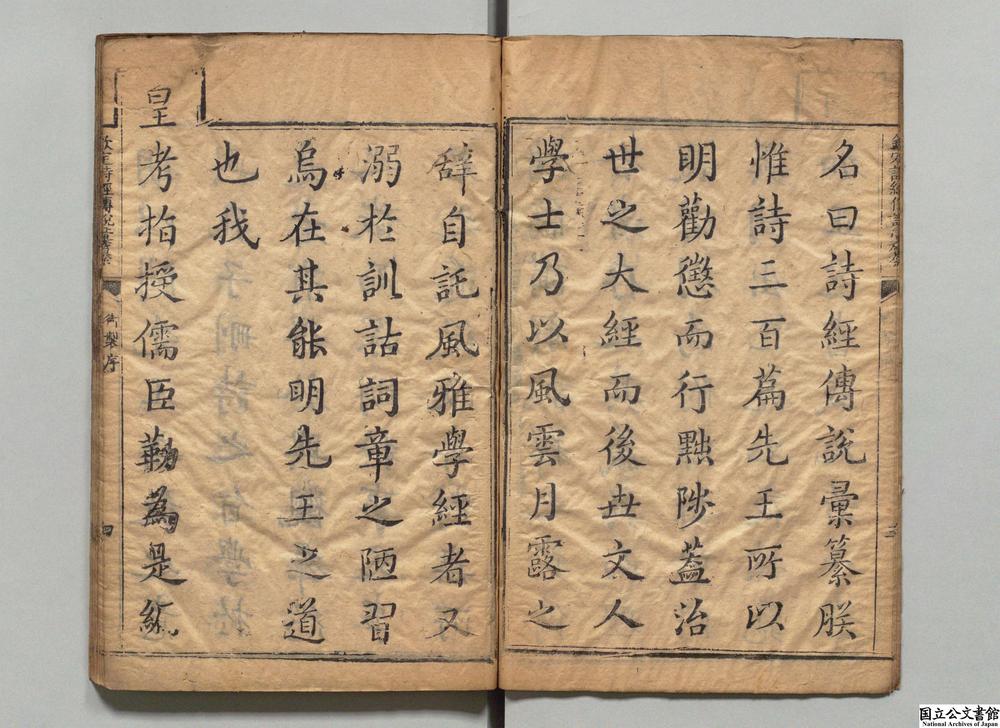 名曰詩經傳說彙纂朕
惟詩三百篇先王所以
明勸懲而行黜陟蓋治
世之大經而後世文人
學士乃以風雲月露之
辭自託風雅學經者又
溺於訓詁詞章之陋習
烏在其能明先王之道
也我
皇考指授儒臣勒為是編
欽定詩經傳說彙纂
御製序
四
欽定詩經傳說彙纂
三
国立公文書館
National Archives of Japan